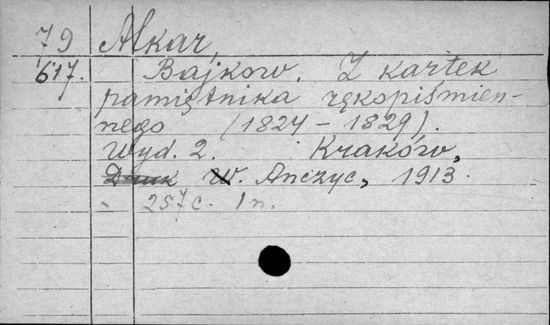 79 Alkar,
617. Bajkow. Z kartek
pamiętnika rękopiśmien-
nego (1824 – 1829).
Wyd. 2. Kraków,
Druk W. Anczyc, 1913.
257 c. 1 n.